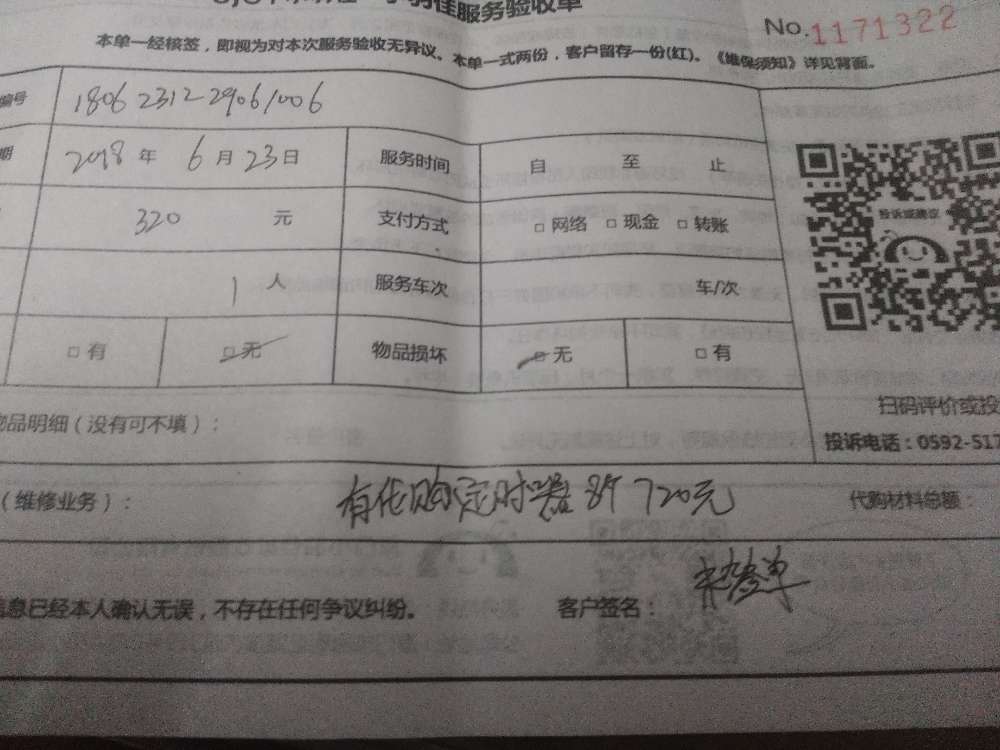 服务验收单
No.1171322
本单一经核签，即视为对本次服务验收无异议。本单一式两份，客户留存一份(红)。《维保须知》详见背面。
编号 1806 2312 2906/006
期 2018 年 6 月 23 日 服务时间 自 至 止
320 元 支付方式 □ 网络 □ 现金 □ 转账
投诉或建议
1 人 服务车次 车/次
□ 有 □ 无 物品损坏 □ 无 □ 有
扫码评价或投
物品明细（没有可不填）：
投诉电话：0592-517
（维修业务）： 有代购定时器8个 720元 代购材料总额：
信息已经本人确认无误，不存在任何争议纠纷。 客户签名：